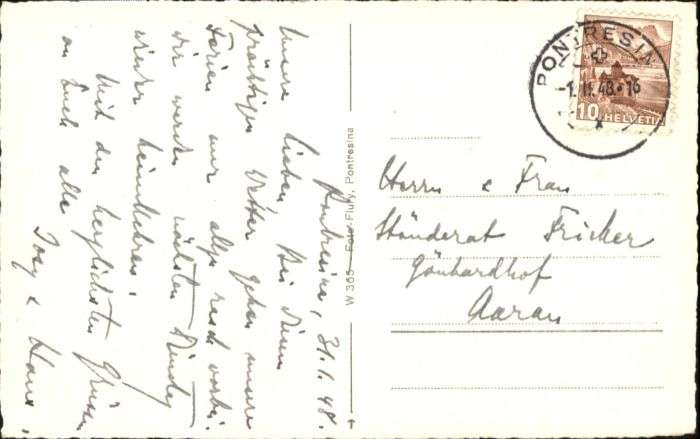 Pontresina, 31.1.48.
Unsere Lieben! Bei diesem
prächtigen Wetter gehen unsere
Ferien nur allzu rasch vorbei.
Wir werden nächsten Dienstag
wieder heimkehren.
Mit den herzlichsten Grüssen
an Euch alle
Josy & Hans.
W 365 Foto Flury, Pontresina
PONTRESINA
-1.II.48.-16
10 HELVETIA
Herrn & Frau
Ständerat Fricker
Gönhardhof
Aarau